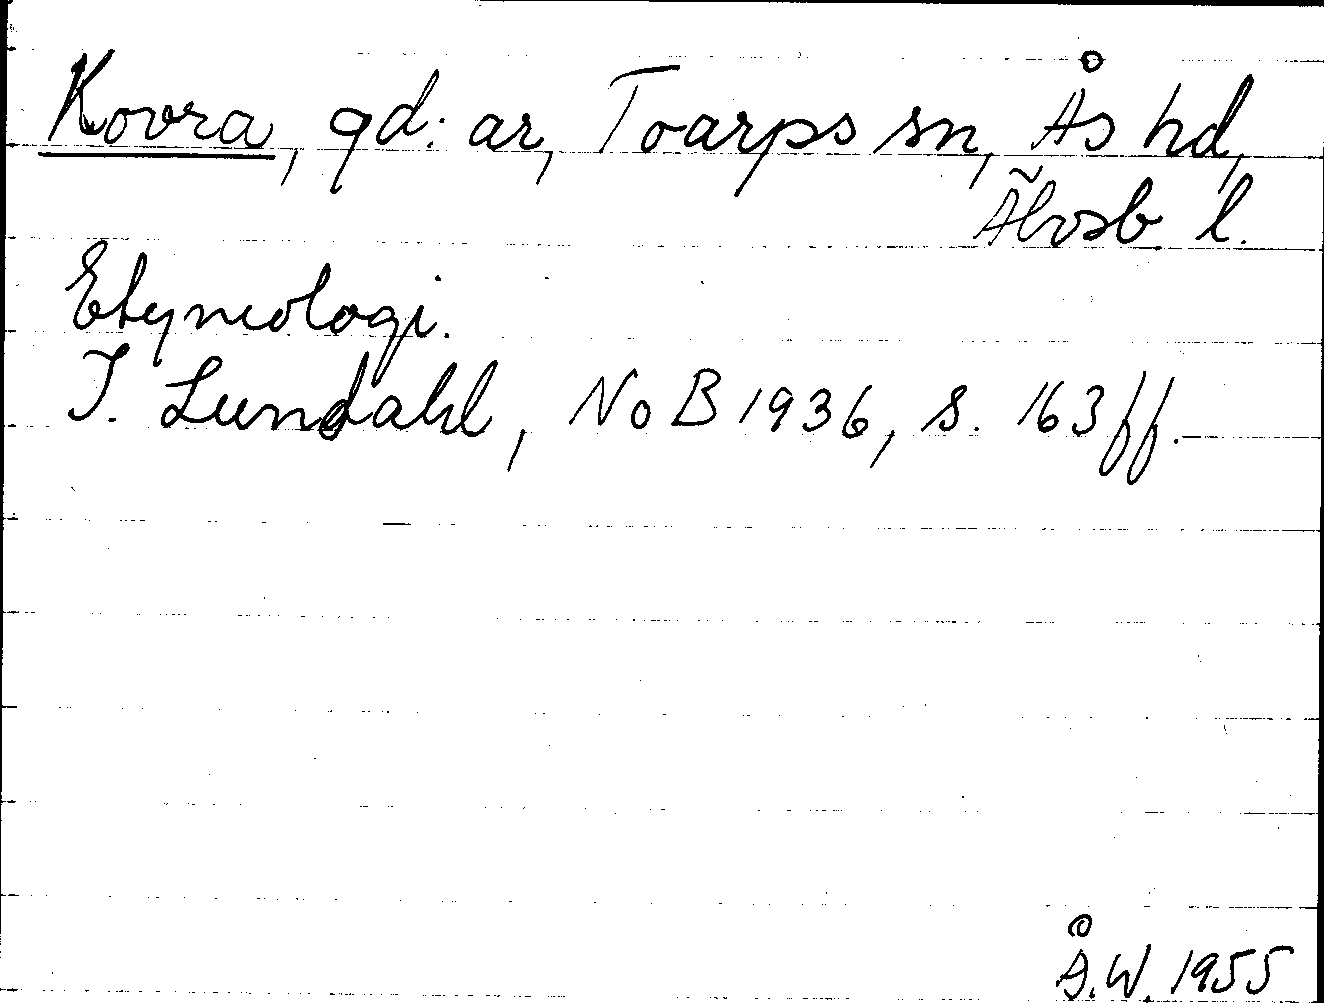 Kovra, gd:ar, Toarps sn, Ås hd,
Älvsb. l.
Etymologi.
I. Lundahl, NoB 1936, s. 163 ff.
Å.W. 1955